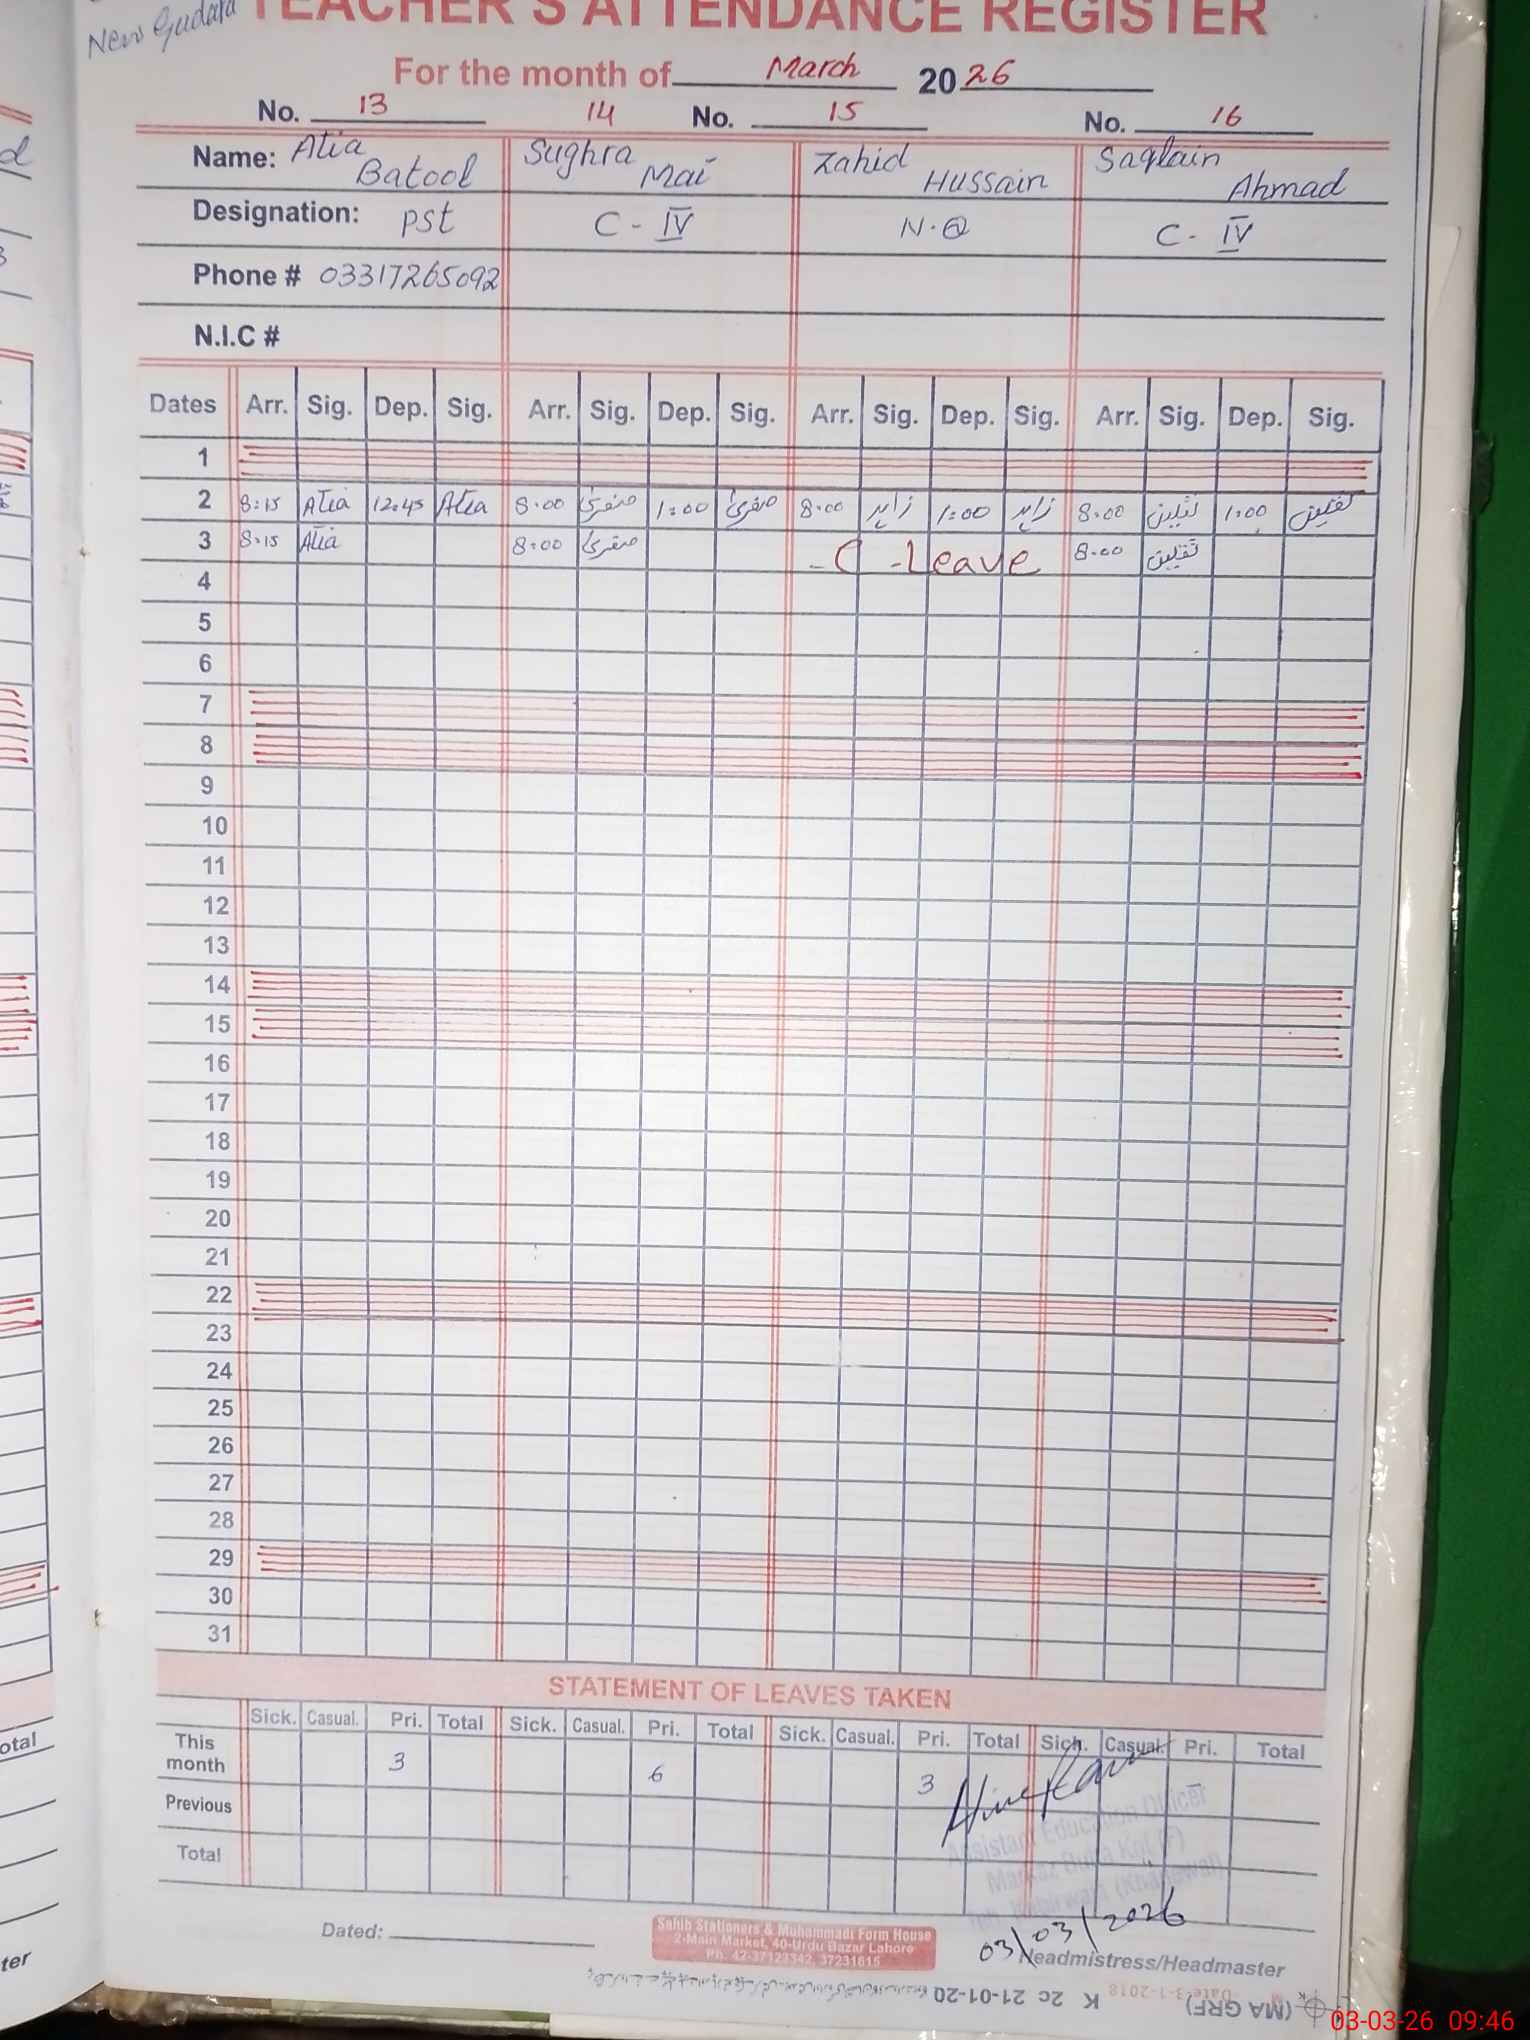 New Gudara
TEACHER'S ATTENDANCE REGISTER
For the month of March 2026
No. 13 14 No. 15 No. 16
Name: Atia Batool Sughra Mai Zahid Hussain Saqlain Ahmad
Designation: Pst C - IV N.Q C - IV
Phone # 03317265092
N.I.C #
Dates Arr. Sig. Dep. Sig. Arr. Sig. Dep. Sig. Arr. Sig. Dep. Sig. Arr. Sig. Dep. Sig.
1
2 8:15 Atia 12:45 Atia 8:00 صغریٰ 1:00 صغریٰ 8:00 زاہد 1:00 زاہد 8:00 ثقلین 1:00 ثقلین
3 8:15 Atia 8:00 صغریٰ - C - Leave 8:00 ثقلین
4
5
6
7
8
9
10
11
12
13
14
15
16
17
18
19
20
21
22
23
24
25
26
27
28
29
30
31
STATEMENT OF LEAVES TAKEN
Sick. Casual. Pri. Total Sick. Casual. Pri. Total Sick. Casual. Pri. Total Sich. Casual. Pri. Total
This month 3 6 3
Previous
Total
Assistant Education Officer
Dated:
Sahib Stationers & Muhammadi Form House
2-Main Market, 40-Urdu Bazar Lahore
Ph. 42-37123342, 37231615
03/03/2026
Headmistress/Headmaster
(MA GRF) Date:3-1-2018 K 2c 21-01-20
03-03-26 09:46